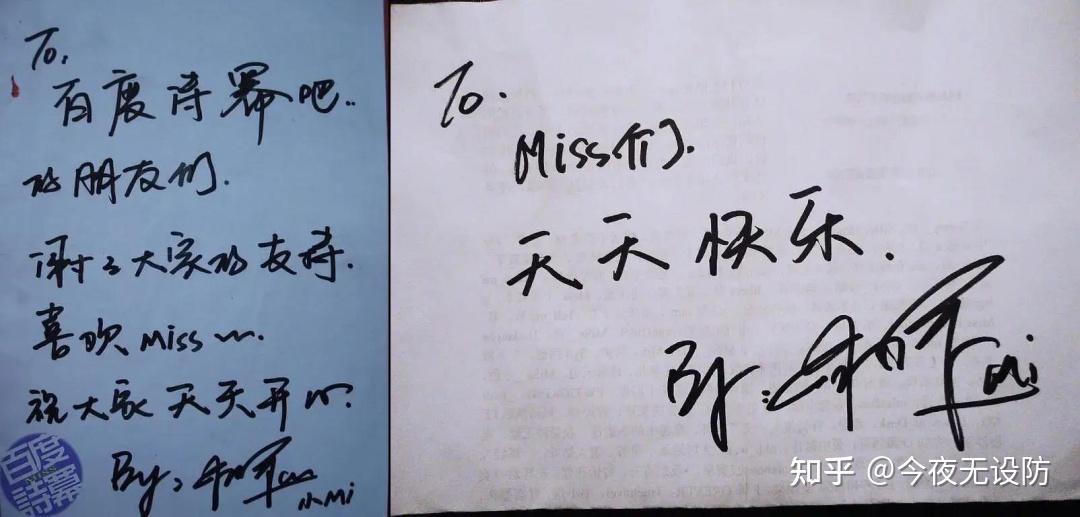 To.
百度诗幂吧..
的朋友们.
谢谢大家的支持.
喜欢Miss~~.
祝大家天天开心.
By:
小Mi
百度
詩冪
To.
Miss们.
天天快乐.
By:
Mi
知乎 @今夜无设防